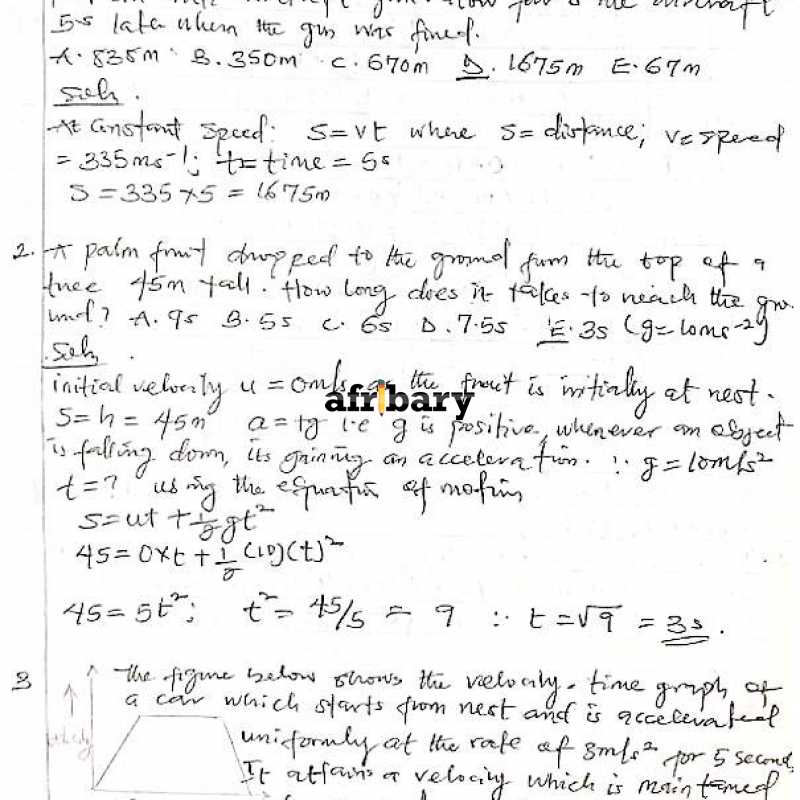 5s late when the gun was fired.
A. 835m B. 350m C. 670m D. 1675m E. 67m
Soln.
At Constant Speed: S=vt where S= distance; v= speed
= 335ms-1; t= time = 5s
S = 335 x 5 = 1675m
2. A palm fruit dropped to the ground from the top of a
tree 45m tall. How long does it takes to reach the gro-
und? A. 9s B. 5s C. 6s D. 7.5s E. 3s (g=10ms-2)
Soln.
initial velocity u = 0m/s as the fruit is initially at rest.
afribary
S=h=45m a=+g i.e g is positive, whenever an object
is falling down, its gaining an acceleration. ∴ g=10m/s²
t=? using the equation of motion
S=ut+½gt²
45=0xt+½(10)(t)²
45=5t²; t²= 45/5 = 9 ∴ t=√9 = 3s.
3 The figure below shows the velocity-time graph of
a car which starts from rest and is accelerated
uniformly at the rate of 3m/s² for 5 second,
It attains a velocity which is maintained